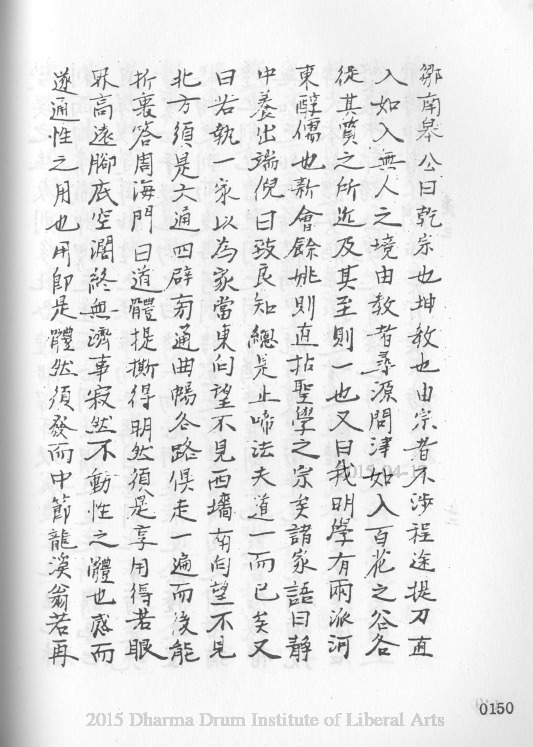 鄒南皋公曰乾宗也坤教也由宗者不涉程途提刀直
入如入無人之境由教者尋源問津如入百花之谷各
從其質之所近及其至則一也又曰我明學有兩派河
東醇儒也新會餘姚則直拈聖學之宗矣諸家語曰靜
中養出端倪曰致良知總是止啼法夫道一而已矣又
曰若執一家以為家當東向望不見西墻南向望不見
北方須是六通四辟旁通曲暢各路俱走一遍而後能
折衷答周海門曰道體提撕得明然須是享用得若眼
界高遠腳底空濶終無濟事寂然不動性之體也感而
遂通性之用也用即是體然須發而中節龍溪翁若再
0150
2015 Dharma Drum Institute of Liberal Arts